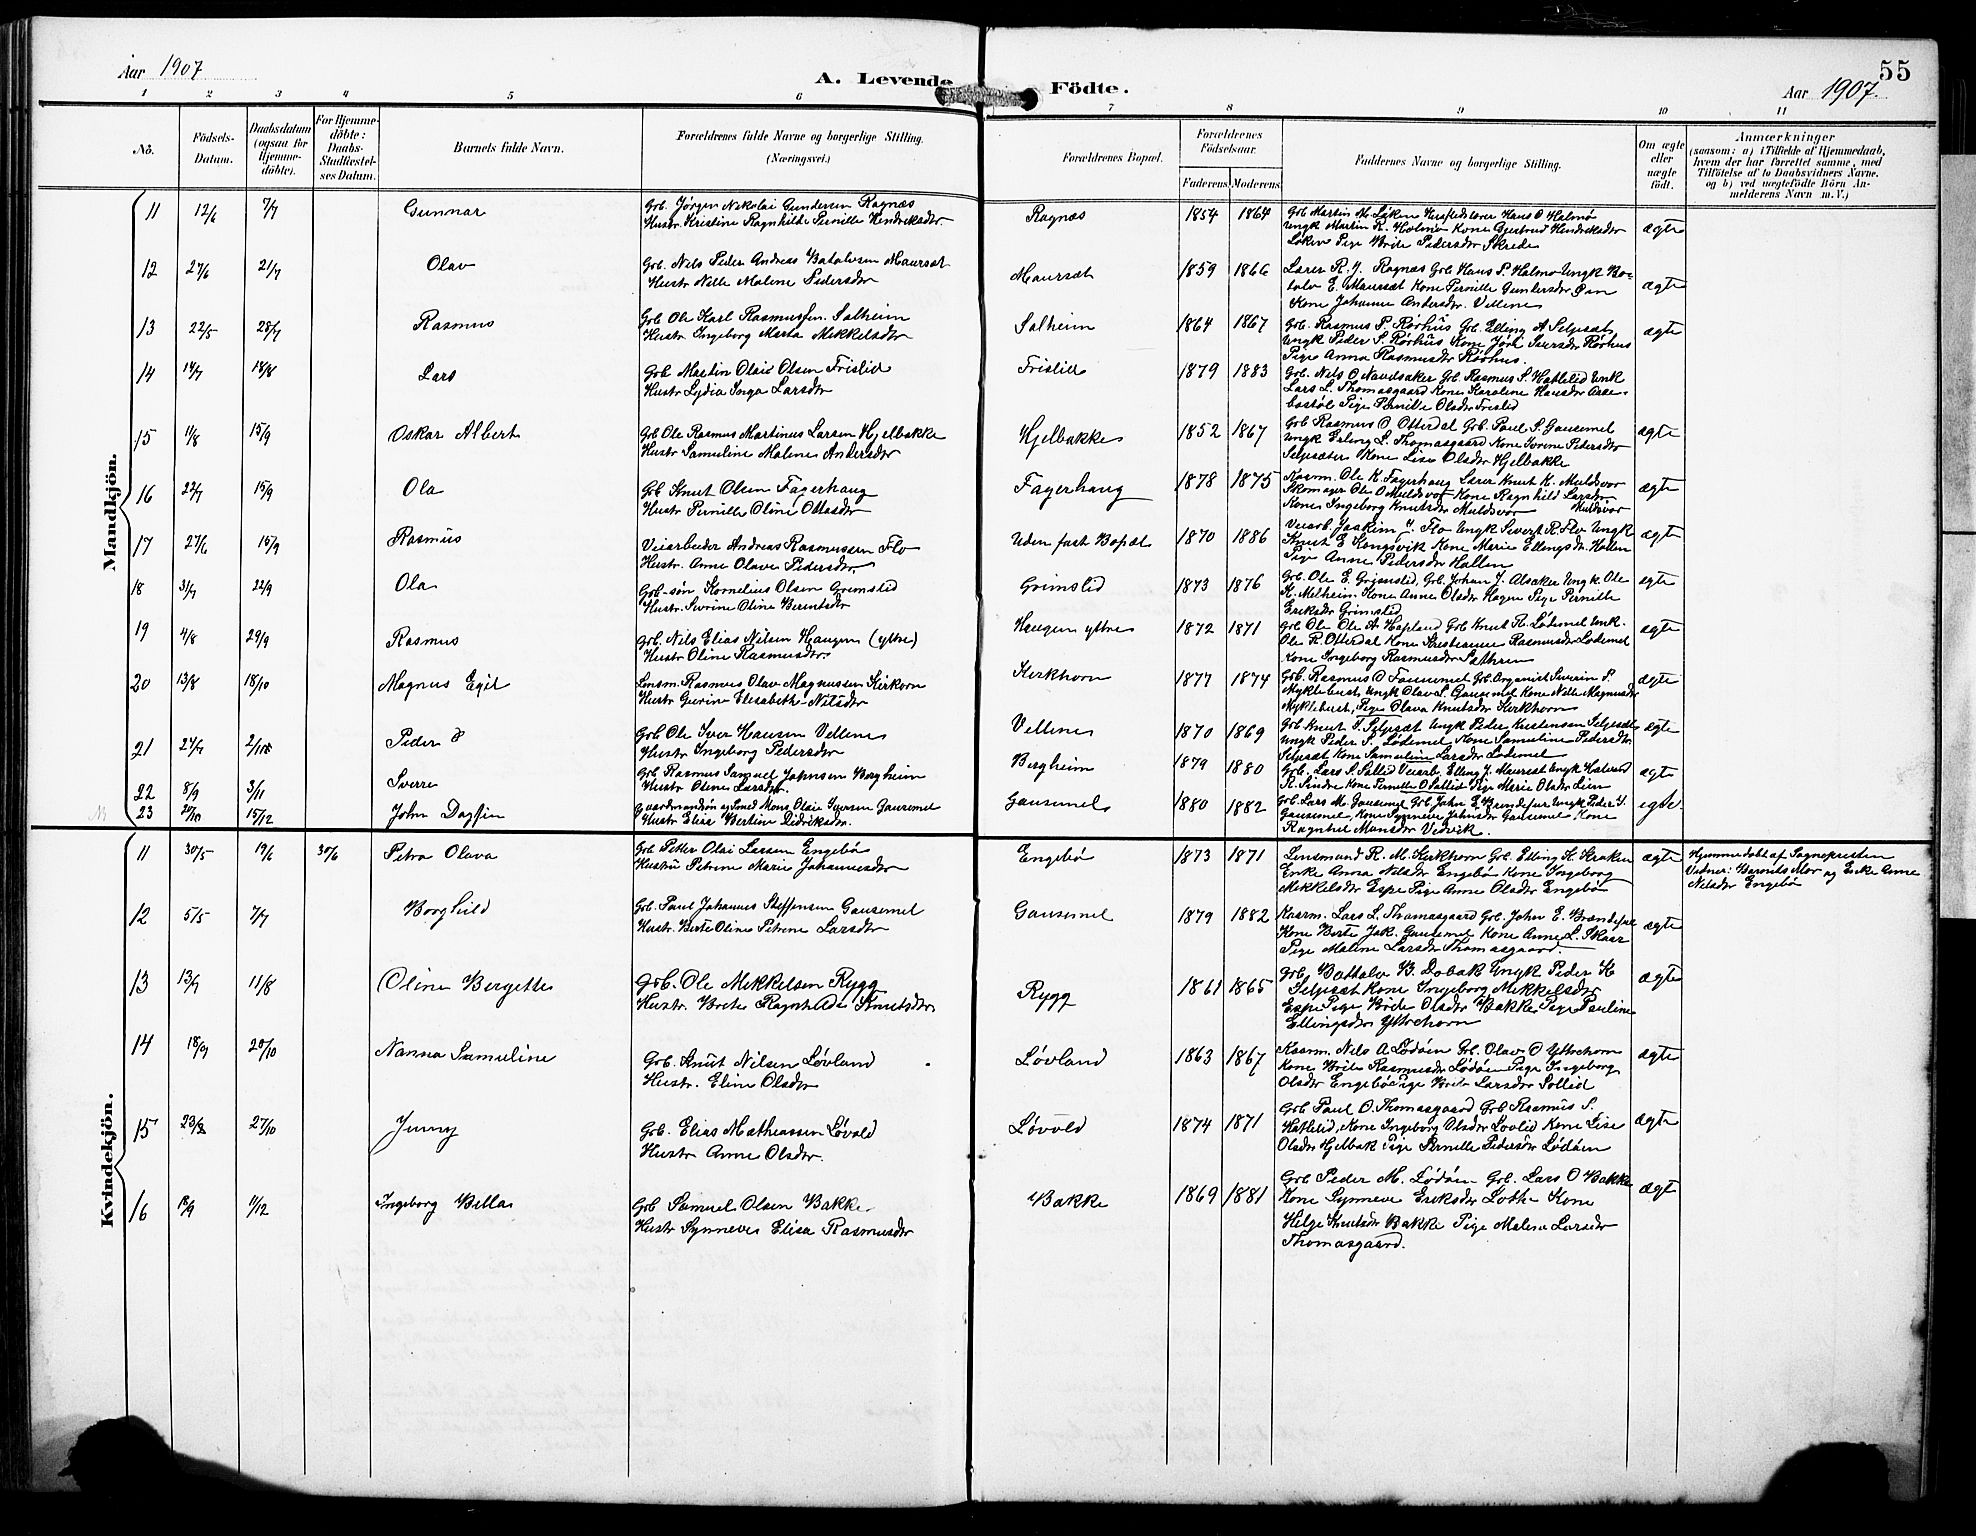 Aar 1907
A. Levende Födte.
55
Aar 1907.
1 2 3 4 5 6 7 8 9 10 11
No.
Födsels-Datum.
Daabsdatum (ogsaa for Hjemmedöbte).
For Hjemmedöbte: Daabs-Stadfæstelses Datum.
Barnets fulde Navn.
Forældrenes fulde Navne og borgerlige Stilling. (Næringsvei.)
Forældrenes Bopæl.
Forældrenes Födselsaar.
Faderens Moderens
Faddernes Navne og borgerlige Stilling.
Om ægte eller uægte födt.
Anmærkninger
(saasom: a) i Tilfælde af Hjemmedaab, hvem der har forrettet samme, med Tilföielse af to Daabsvidners Navne. og b) ved uægtefödte Börn Anmelderens Navn m. V.)
Mandkjön.
11 12/6 7/7 Gunnar
Grb. Jörgen Nikolai Gundersen Ragnæs
Hustr. Kristine Ragnhilde Pernille Hendriksdtr.
Ragnæs 1854 1864
Grb Martin M. Løken Hans O Holmø
Ungk Martin R. Holmø Kone Gjertrud Hendriksdtr
Løken Pige Brite Pedersdtr Skrede
ægte
12 27/6 21/7 Olav
Grb. Nils Peder Andreas Batalvsen Maurset
Hustr Nille Malene Pedersdtr
Maursæt 1859 1866
Lærer R. J. Ragnæs Grb Hans P. Holmø Ungk Bo-
talv E. Maursæt Kone Pernille Gundersdtr Øen
Kone Johanne Andersdtr. Vellene
ægte
13 22/5 28/7 Rasmus
Grb Ole Karl Rasmussen Solheim
Hustr Ingeborg Marta Mikkelsdtr
Solheim 1864 1867
Grb. Rasmus P. Rørhus Grb. Elling A Selgesæt
Ungk Peder S. Rørhus Kone Jørli Iversdtr Rørhus
Pige Anna Rasmusdtr Rørhus.
ægte
14 14/7 18/8 Lars
Grb Martin Olais Olsen Frislid
Hustr Lydia Inga Larsdtr
Frislid 1879 1883
Grb. Nils O Navelsaker Grb. Rasmus S. Hatlelid Unk
Lars L. Thomasgaard Kone Karoline Hansdtr Aase-
bøstøl Pige Pernille Olsdtr Frislid
ægte
15 11/8 15/9 Oskar Albert
Grb Ole Rasmus Martinus Larsen Hjelbakke
Hustr Samuline Malene Andersdtr
Hjelbakke 1852 1867
Grb Rasmus O Otterdal Grb. Paul S. Gausemel
Ungk Erling L. Thomasgaard Kone Ivrine Pedersdtr
Selgesæter Kone Lise Olsdtr Hjelbakke
ægte
16 22/7 15/9 Ola
Grb Knut Olsen Fagerhaug
Hustr Pernille Oline Ottosdtr
Fagerhaug 1878 1875
Kaarm. Ole K. Fagerhaug Lærer Knut K. Muldsvor
Skomager Ole O Muldsvor Kone Ragnhild Larsdtr
Kone Ingeborg Knutsdtr Muldsvor Muldsvor
ægte
17 27/6 15/9 Rasmus
Veiarbeider Andreas Rasmussen Flo
Hustr. Anne Olave Pedersdtr
Uden fast Bopæl 1870 1886
Veiarb. Joakim J. Flo Ungk Sivert R. Flo Ungk
Knut E Kongsvik Kone Marie Ellingsdtr. Hallen
Pige Anne Pedersdtr Hallen
ægte
18 31/7 22/9 Ola
Grb-søn Kornelius Olsen Grimslid
Hustr. Sivrine Oline Berentsdtr
Grimslid 1873 1876
Grb. Ole E. Grimslid, Grb. Johan J. Alsaker Ungk. Ole
K. Melheim. Kone Anne Olsdtr Hagen Pige Pernille
Eriksdtr Grimslid
ægte
19 4/8 29/9 Rasmus
Grb. Nils Elias Nilsen Haugen (ytre)
Hustr Oline Rasmusdtr.
Haugen ytre 1872 1871
Grb Ole Ole A Hopland Grb Knut Lødemel Unk.
Ole R. Otterdal Kone Kristianne Rasmusdtr Lødemel
Kone Ingeborg Rasmusdtr Sætren
ægte
20 13/8 18/10 Magnus Egil
Lensm. Rasmus Olav Magnussen Kirkorn
Hustr Gurine Elisabeth Nilsdtr
Kirkhorn 1877 1874
Grb. Rasmus O Faussemel Grb. Organist Severin S.
Myklebust, Ungk Olav S. Gausemel Kone Nille Magnusdtr
Myklebust, Pige Olava Knutsdtr Kirkhorn
ægte
21 27/7 2/11 Peder
Grb Ole Iver Hansen Vellene
Hustr Ingeborg Pedersdtr
Vellene 1870 1869
Grb Knut T. Selgesæt Ungk Peder Kristensen Selgesæt
Ungk Peder S. Lødemel Kone Samuline Pedersdtr
Selgesæt Kone Samuline Larsdtr Lødemel
ægte
22 8/9 3/11 Sverre
Grb. Rasmus Samuel Johnsen Bergheim
Hustr Oline Larsdtr.
Bergheim 1879 1880
Grb. Lars S. Sollid Veiarb. Elling J. Maurset Ungk Halvard
R. Sindre Kone Pernille O Sollid Pige Marie Olsdtr Lien
ægte
23 20/10 15/12 John Dagfin
Gaardmandsøn og Smed Mons Olai Iversen Gausemel
Hustr. Elise Bertine Didriksdtr.
Gausemel 1880 1882
Grb. Lars M. Gausemel Grb. John E. Brændefur Ungk Peder I.
Gausemel, Kone Synneve Johnsdtr Gausemel, Kone
Ragnhil Monsdtr Vedvik.
egte
Kvindekjön.
11 30/5 19/6 30/6 Petra Olava
Grb Petter Olai Larsen Engebø
Hustru Petrine Marie Johannesdtr
Engebø 1873 1871
Lensmand R. M. Kirkhorn Grb. Elling K. Kraken
Enke Anna Nilsdtr Engebø Kone Ingeborg
Mikkelsdtr Espe Pige Anne Olsdtr Engebø
ægte
Hjemmedøbt af Sognepresten
Vidner: Barnets Mor og Enke Anne
Nilsdtr Engebø
12 5/5 7/7 Borghild
Grb. Paul Johannes Steffensen Gausemel
Hustr. Berte Oline Petrine Larsdtr
Gausemel 1879 1882
Kaarm. Lars L. Thomasgaard Grb. John E. Brændefur
Kone Berte Jak. Gausemel Kone Anne L. Skaar
Pige Malene Larsdtr Thomasgaard
ægte
13 13/7 11/8 Oline Bergette
Grb. Ole Mikkelsen Rygg
Hustr. Brite Ragnhilde Knutsdtr
Rygg 1861 1865
Grb Battalv B. Dobak Ungk Peder K
Selgesæt Kone Ingeborg Mikkelsdtr
Espe Pige Brite Olsdtr Bakke Pige Pauline
Ellingsdtr Yttrehorn
ægte
14 18/9 20/10 Nanna Samuline
Grb. Knut Nilsen Løvland
Hustr. Eline Olsdtr
Løvland 1863 1867
Kaarm. Nils A Lødøen Grb. Olav O Yttrehorn
Kone Brite Rasmusdtr Lødøen Pige Ingeborg
Olsdtr Engebø Pige Brite Larsdtr Sollid
ægte
15 27/10 Jenny
Grb. Elias Mathiassen Løvold
Hustr Anne Olsdtr.
Løvold 1874 1871
Grb Paul O. Thomasgaard Grb Rasmus S.
Hatlelid, Kone Ingeborg Olsdtr Lovlid Kone Lise
Olsdtr Hjelbak Pige Pernille Pedersdtr Lødøen
ægte
16 1/12 Ingeborg Bella
Grb Samuel Olsen Bakke
Hustr Synneve Elisa Rasmusdtr
Bakke 1869 1881
Grb Peder M. Lødøen Grb. Lars O Bakke
Kone Synneve Eriksdtr Lothe Kone
Helge Knutsdtr Bakke Pige Malene Larsdtr
Thomasgaard.
ægt